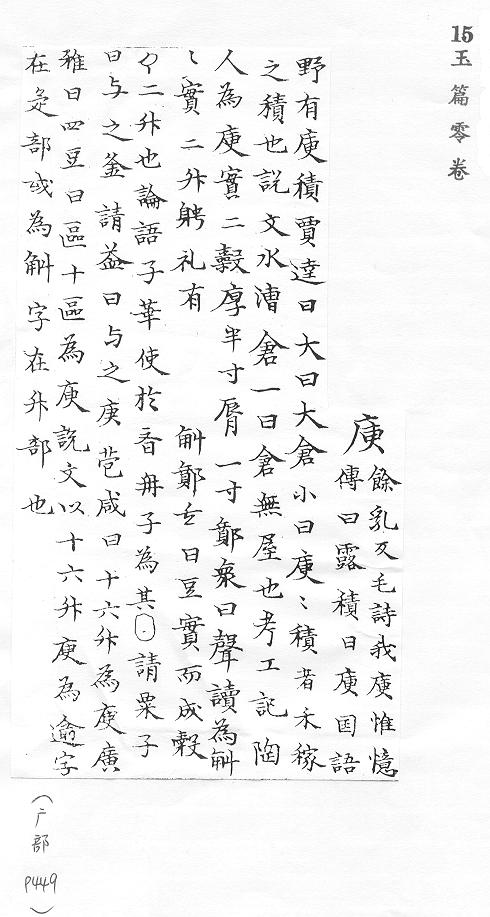 15玉篇零卷
庾
餘乳反毛詩我庾惟憶
傳曰露積曰庾国語
野有庾積賈逵曰大曰大倉小曰庾〻積者禾稼
之積也説文水漕倉一曰倉無屋也考工記陶
人為庾實二觳厚半寸脣一寸鄭衆曰聲讀為斞
〻實二升聘礼有 斞鄭玄曰豆實而成觳
〻二升也論語子華使於斉冉子為其請粟子
曰与之釜請益曰与之庾苞咸曰十六升為庾廣
雅曰四豆曰區十區為庾説文以十六升庾為逾字
在辵部或為斞字在升部也
(广部
P449)